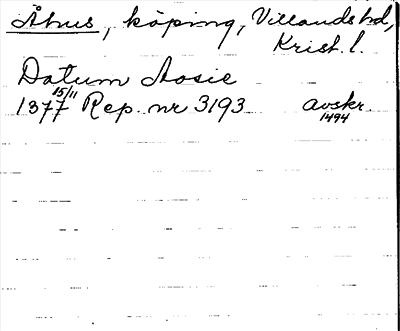 Åhus, köping, Villands hd,
Krist. l.
Datum Aosie
1377 15/11 Rep. nr 3193 avskr.
1494